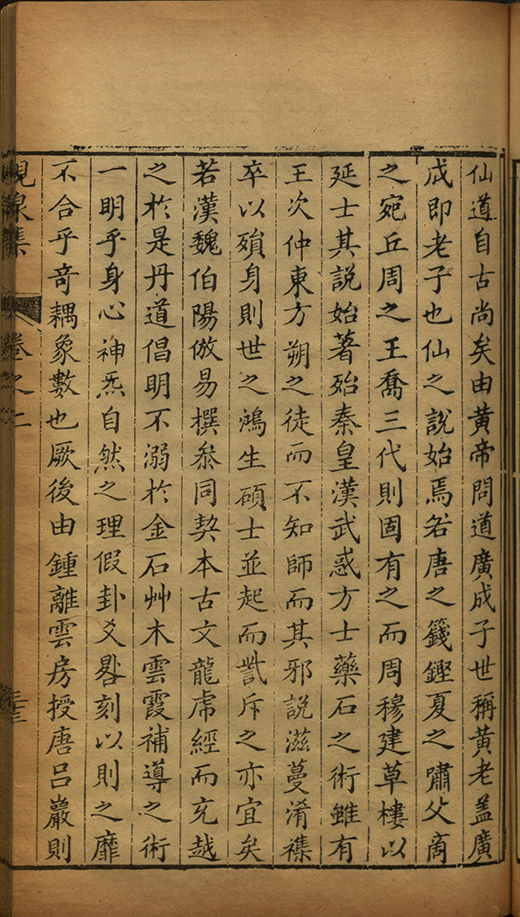 仙道自古尚矣由黄帝問道廣成子世稱黄老盖廣
成即老子也仙之說始焉若唐之籛鏗夏之嘯父商
之宛丘周之王喬三代則固有之而周穆建草樓以
延士其說始著殆秦皇漢武惑方士藥石之術雖有
王次仲東方朔之徒而不知師而其邪說滋蔓淆襍
卒以殞身則世之鴻生碩士並起而詆斥之亦宜矣
若漢魏伯陽倣易撰叅同契本古文龍虎經而充越
之於是丹道倡明不溺於金石艸木雲霞補導之術
一明乎身心神炁自然之理假卦爻晷刻以則之靡
不合乎竒耦象數也厥後由鍾離雲房授唐吕巖則
峴泉集
卷之二